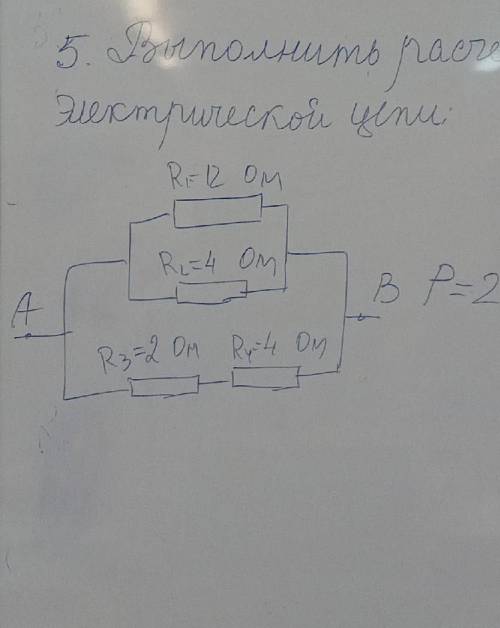 5. Выполнить расче
электрической цепи:
R1=12 Ом
R2=4 Ом
A
B P=2
R3=2 Ом R4=4 Ом